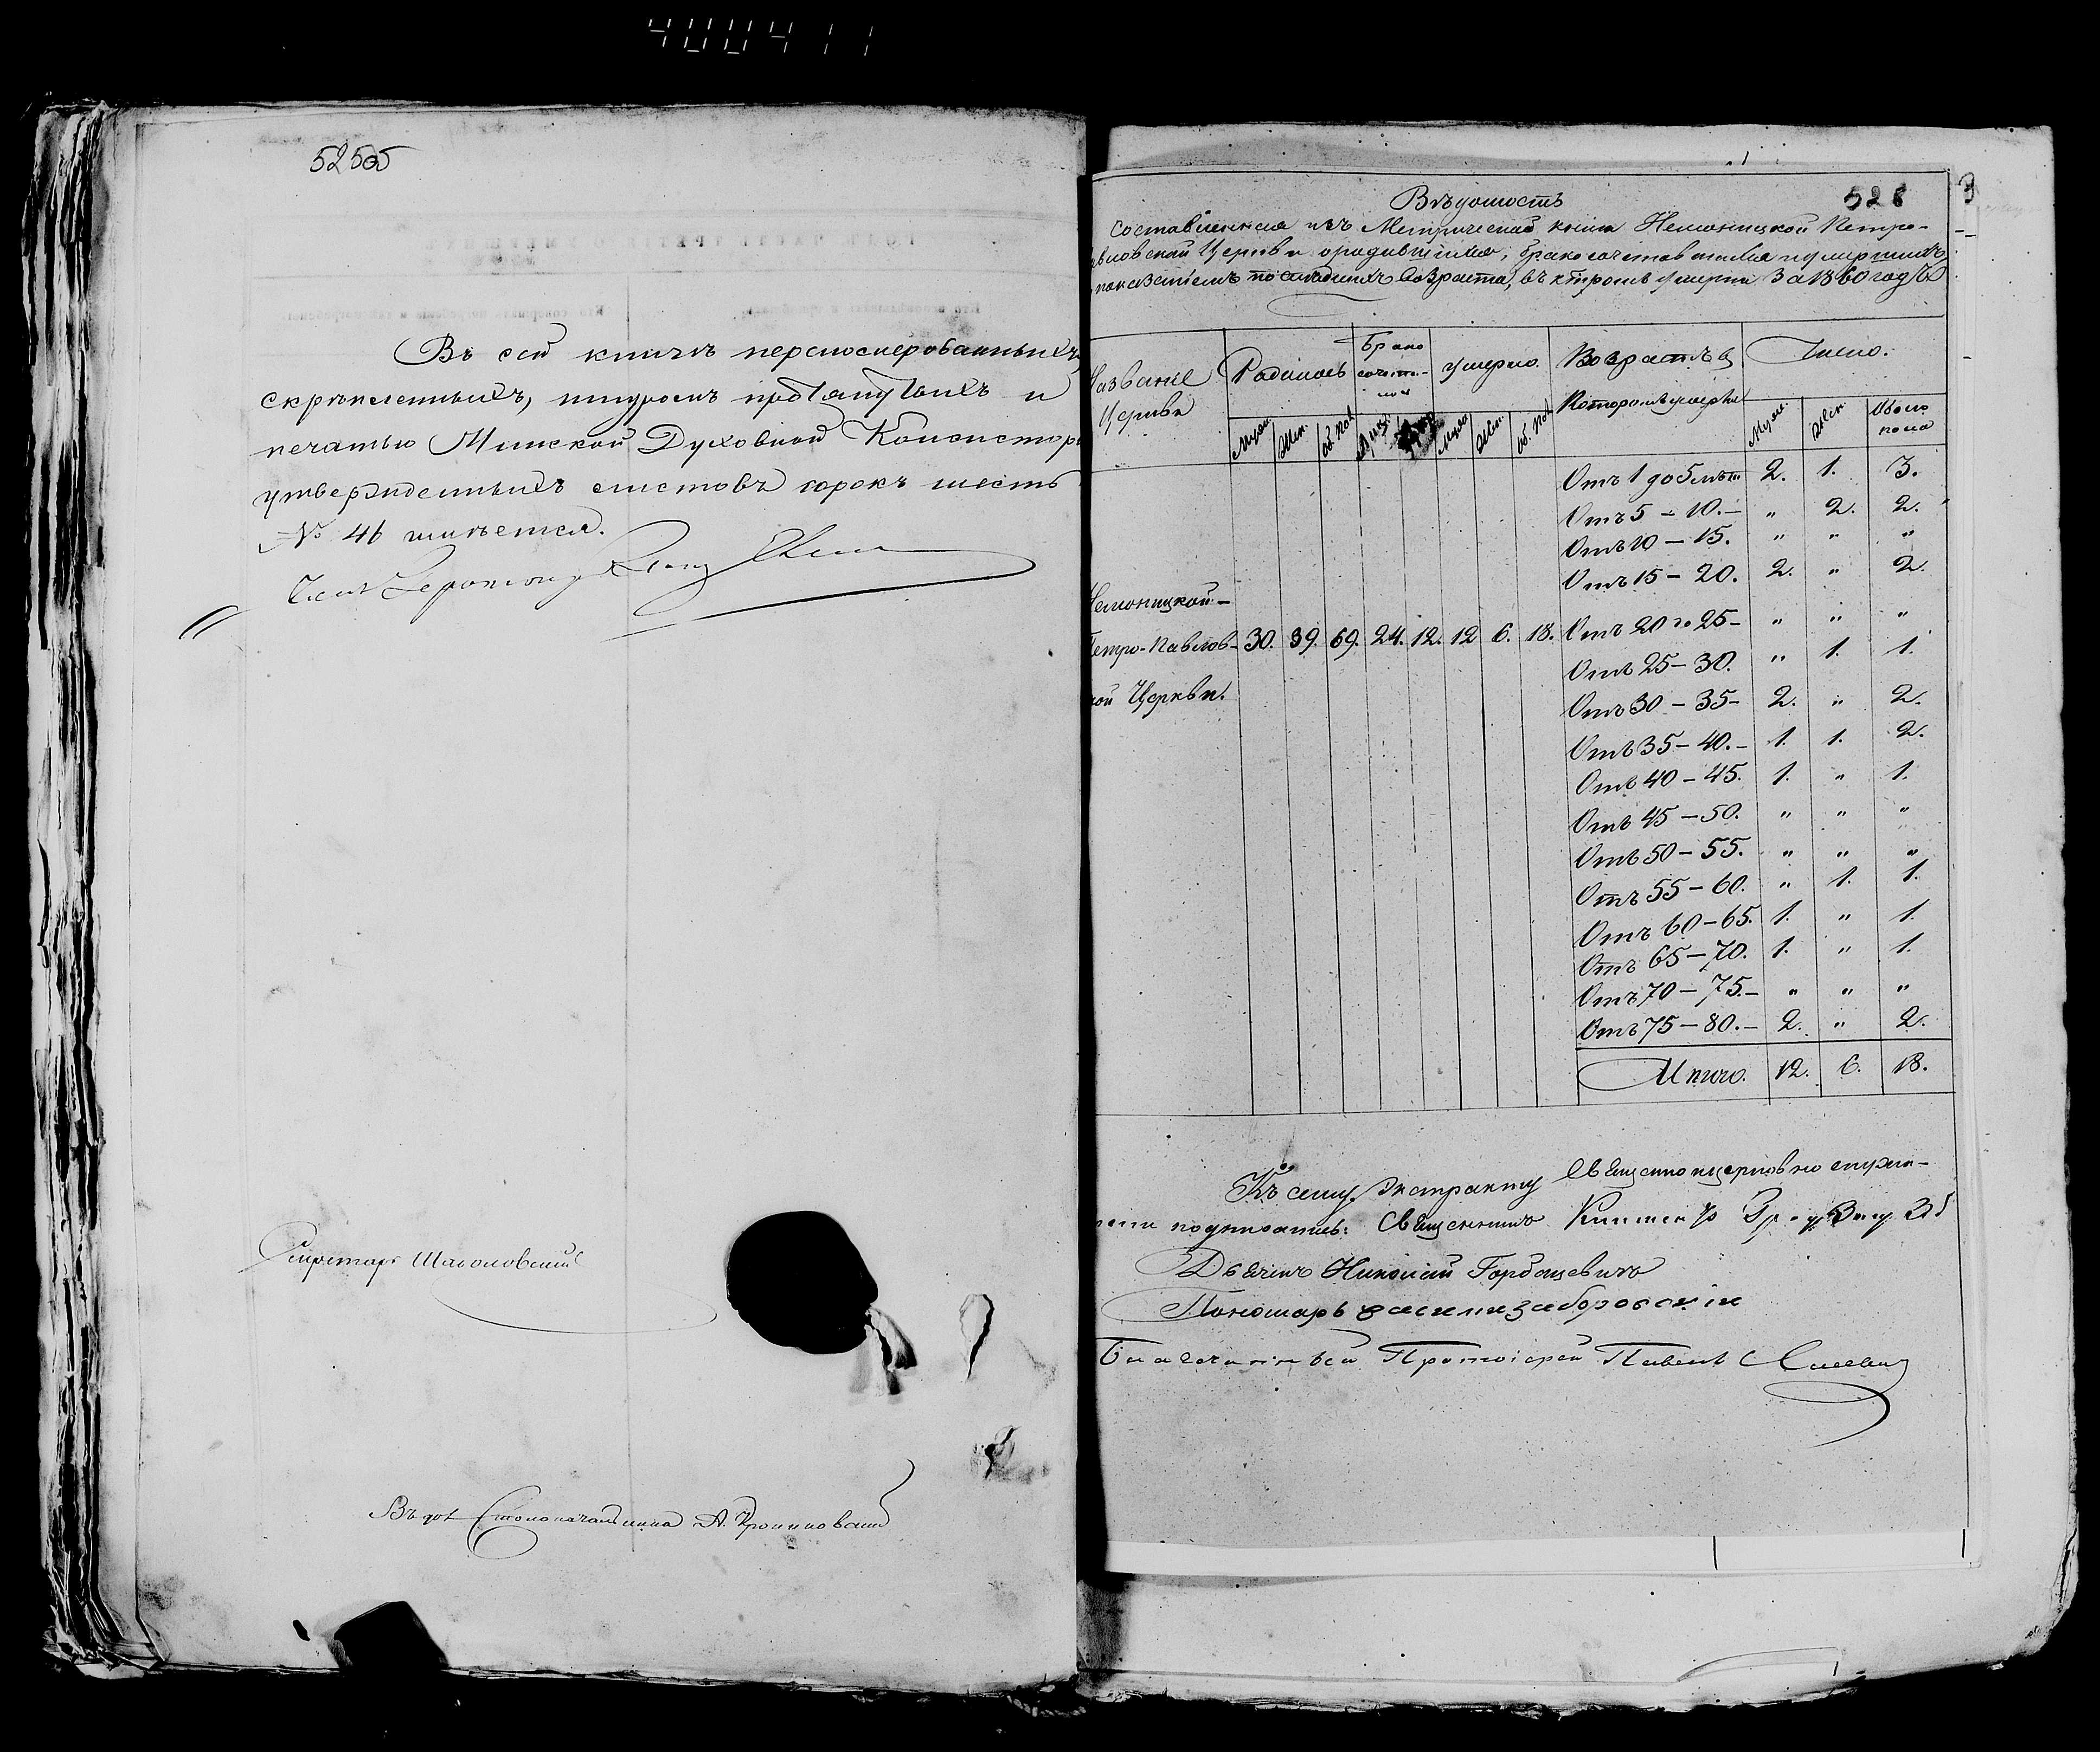 400411
525об
Въ сей книгѣ переномерованныхъ,
скрѣпленныхъ, шнуромъ протянутыхъ и
печатью Минской Духовной Консистор
утвержденныхъ листовъ сорокъ шесть
№ 46 имѣется.
Членъ
Секретарь
Въ дол. Столоначальника А.
526
Вѣдомость
составленная изъ Метрической книги Немоницкой Петро-
авловской Церкви о родившихся, бракосочетавшихся и умершихъ,
показаніемъ по сколькихъ возраста, въ которомъ умерли За 1860 годъ
Названіе Церкви
Родилось
Брако сочета-
Умерло.
Возрастъ въ Которомъ умерли
Число.
Муж. Жен. Об. пол. Муж. Жен. Об. пол.
Муж. Жен. Обоего пола
Отъ 1 до 5 лѣт 2. 1. 3.
Отъ 5 – 10. – „ 2. 2.
Отъ 10 – 15. „ „ „
Отъ 15 – 20. 2. „ 2.
Немоницкой –
Петро-Павлов- 30. 39. 69. 24. 12. 12 6. 18. Отъ 20 до 25 – „ „ „
Отъ 25 – 30. „ 1. 1.
кой Церкви. Отъ 30 – 35 – 2. „ 2.
Отъ 35 – 40. – 1. 1. 2.
Отъ 40 – 45. 1. „ 1.
Отъ 45 – 50. „ „ „
Отъ 50 – 55. „ „ „
Отъ 55 – 60. „ 1. 1.
Отъ 60 – 65. 1. „ 1.
Отъ 65 – 70. 1. „ 1.
Отъ 70 – 75. – „ „ „
Отъ 75 – 80. – 2. „ 2.
Итого. 12. 6. 18.
Къ сему Экстракту Священноцерковно служи-
тели подписались: Священникъ
Дьячекъ Николай Горбацевичъ
Пономарь Василій Заборовскій
Благочинный Протоіерей Павелъ